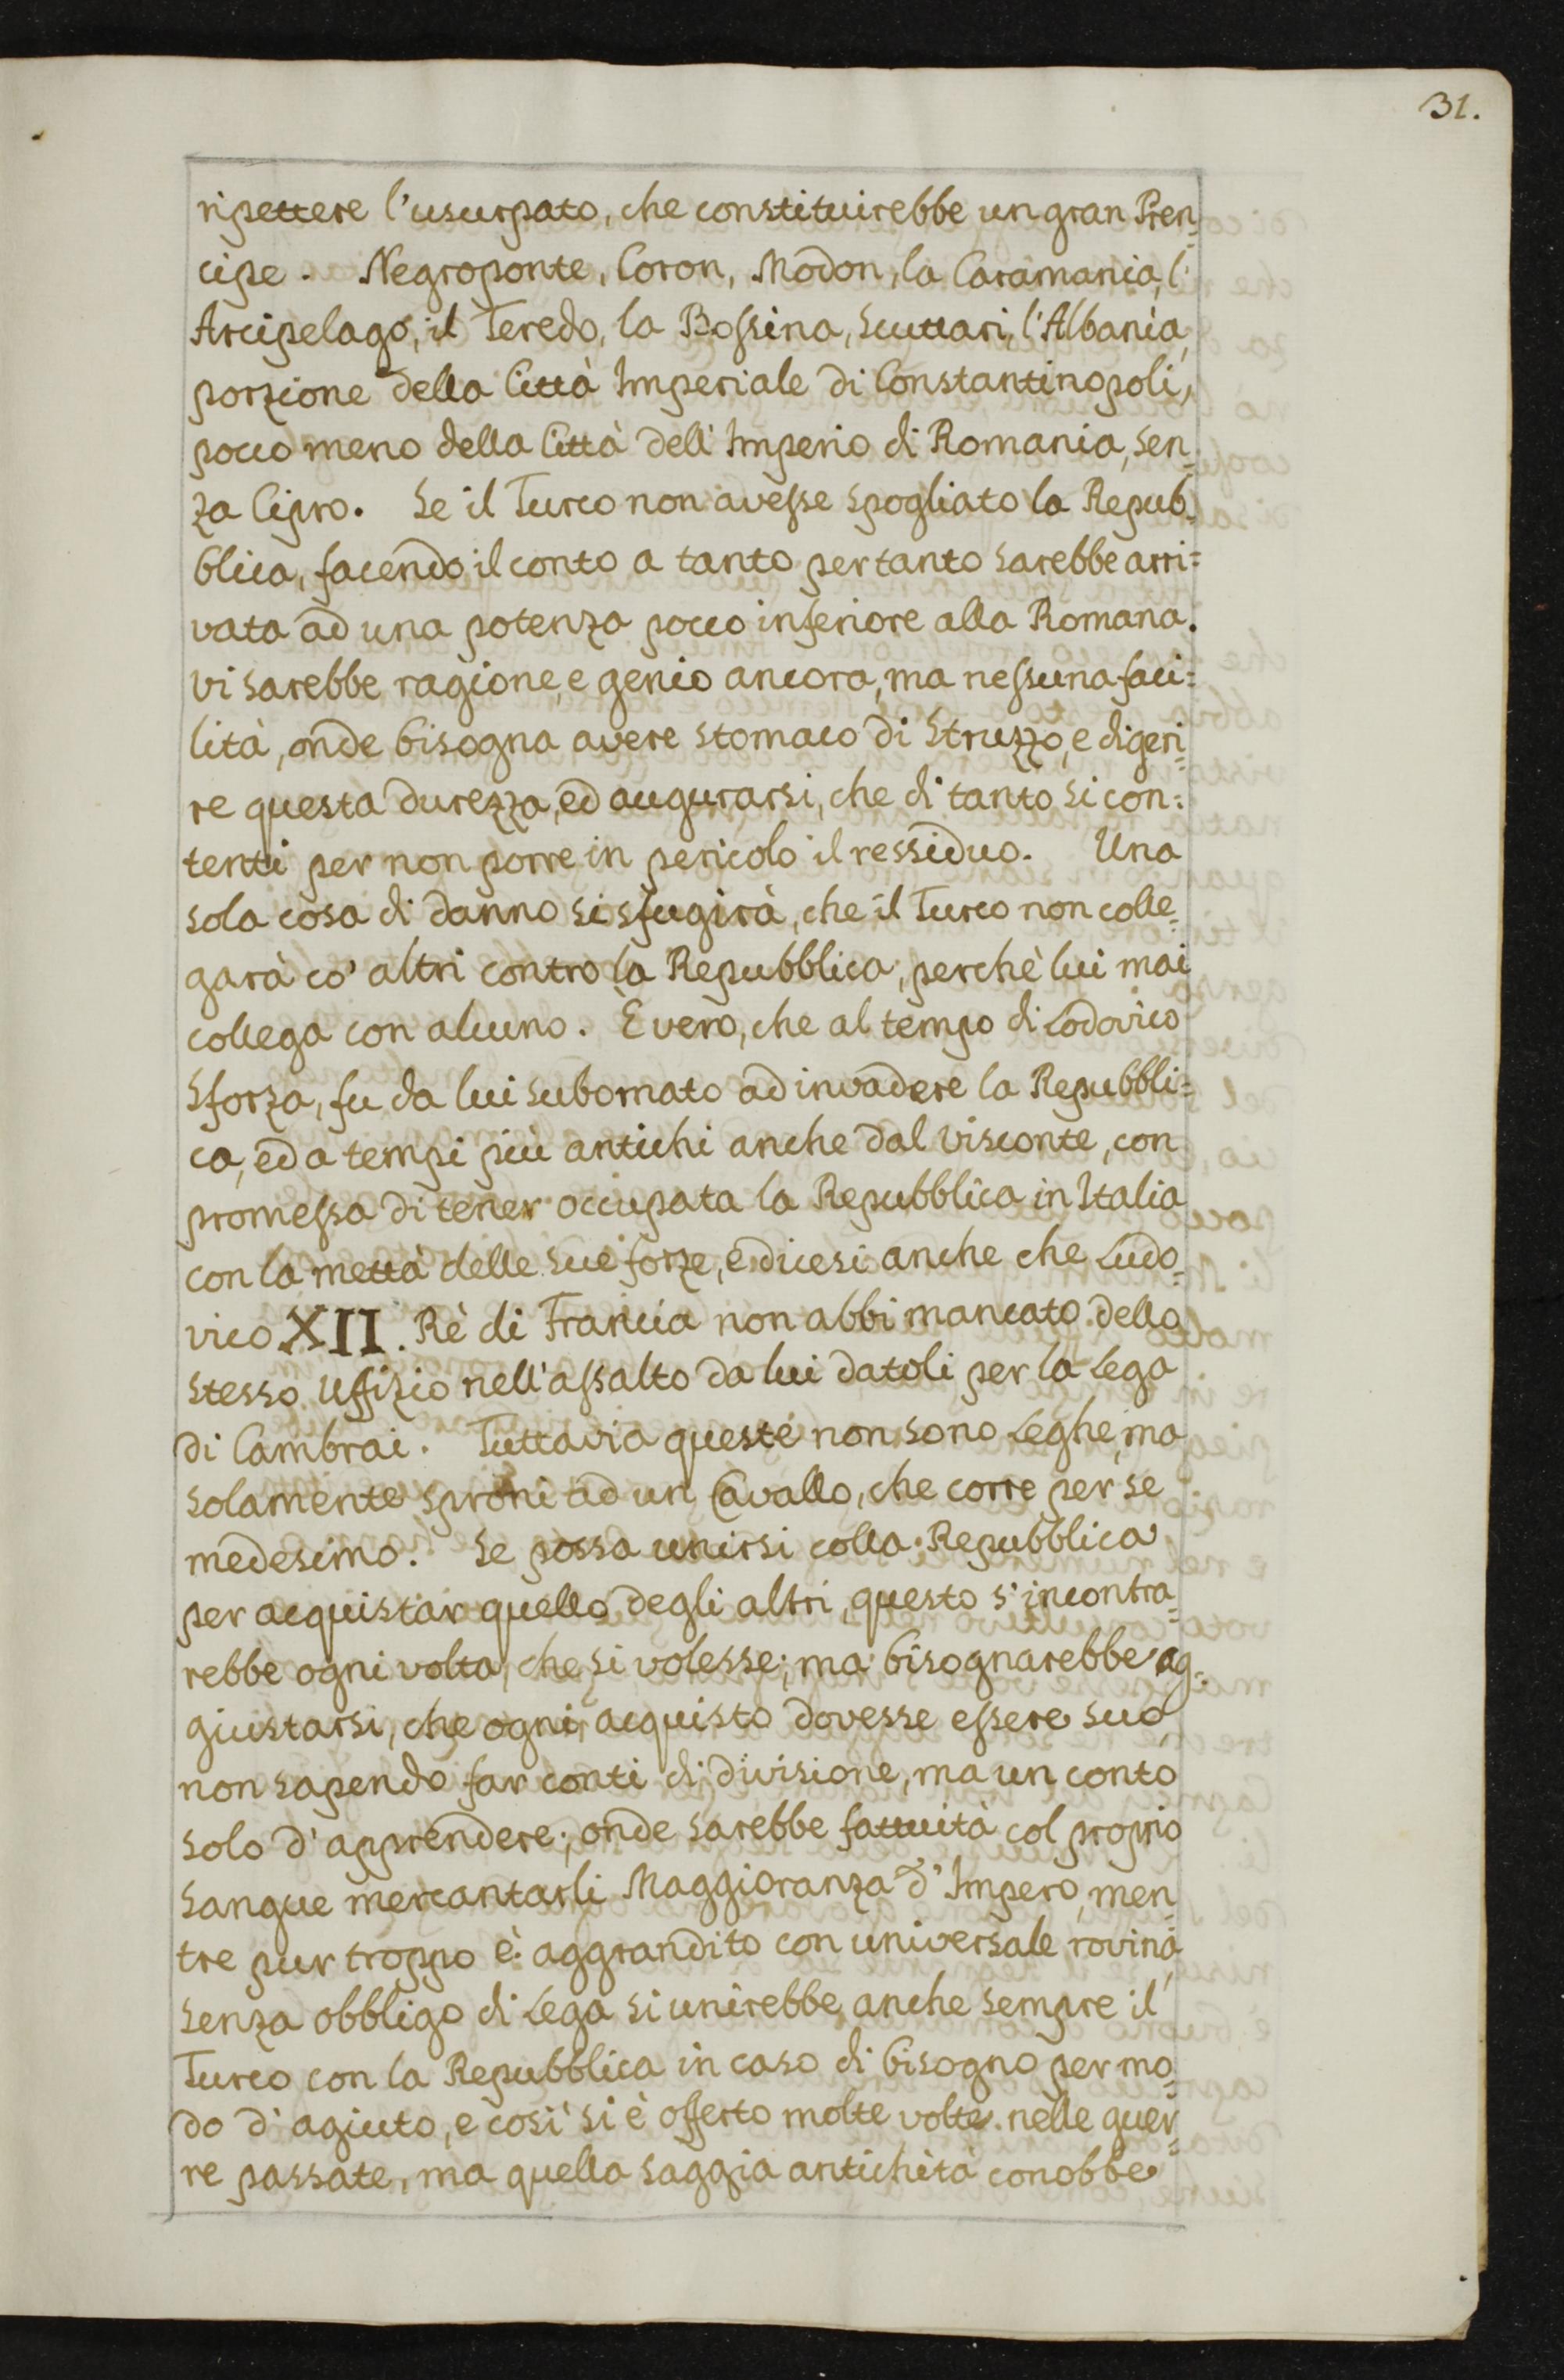 31.
ripettere l'usurpato, che constituirebbe un gran Pren=
cipe. Negroponte, Coron, Modon, la Caramania, l'
Arcipelago, il Teredo, la Bossina, Scuttari, l'Albania,
porzione della Città Imperiale di Constantinopoli,
pocco meno della Città dell'Imperio di Romania, Sen=
za Cipro. Se il Turco non avesse Spogliato la Repub=
blica, facendo il conto a tanto per tanto Sarebbe arri=
vata ad una potenza pocco inferiore alla Romana.
Vi Sarebbe ragione, e genio ancora, ma nessuna faci=
lità, onde bisogna avere stomaco di Struzzo, e digeri=
re questa durezza, ed augurarsi, che di tanto Si con=
tenti per non porre in pericolo il ressiduo. Una
sola cosa di danno Si sfugirà, che il Turco non colle=
garà co' altri contro la Repubblica, perchè lui mai
collega con alcuno. È vero, che al tempo di Lodovico
Sforza, fu da lui Subornato ad invadere la Repubbli=
ca, ed a tempi più antichi anche dal Visconte, con
promessa di tener occupata la Repubblica in Italia
con la mettà delle Sue forze, e dicesi anche che Ludo=
vico XII. Rè di Francia non abbi mancato dello
stesso Uffizio nell'assalto da lui datoli per la Lega
di Cambrai. Tuttavia queste non sono Leghe, ma
solamente sproni ad un Cavallo, che corre per se
medesimo. Se possa unirsi colla Repubblica
per acquistar quello degli altri, questo s'incontra=
rebbe ogni volta, che si volesse; ma bisognarebbe ag=
giustarsi, che ogni acquisto dovesse essere suo,
non sapendo far conti di divisione, ma un conto
solo d'apprendere; onde sarebbe fattuità col proprio
Sangue mercantarli Maggioranza d'Impero, men=
tre pur troppo è aggrandito con universale rovina,
Senza obbligo di Lega si unirebbe anche sempre il
Turco con la Repubblica in caso di bisogno per mo=
do d'agiuto, e così si è offerto molte volte nelle guer=
re passate, ma quella Saggia antichità conobbe